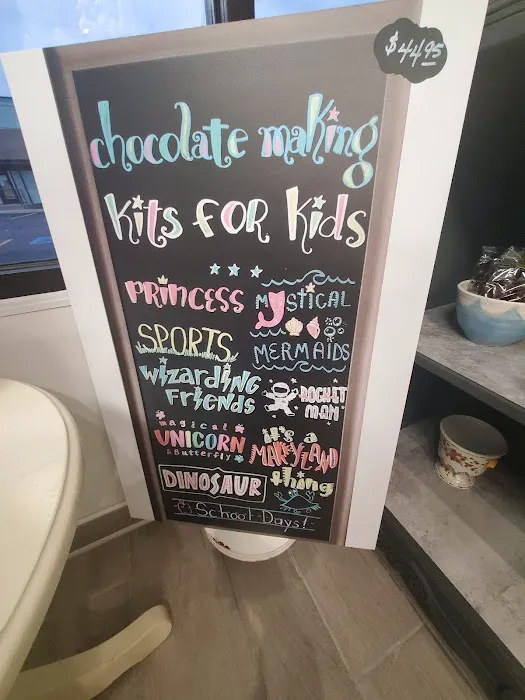 $44.95
chocolate making
kits for kids
Princess
Mystical
Mermaids
Sports
Wizarding
Friends
Rocket
Man
magical
Unicorn
& Butterfly
it's a
Maryland
thing
Dinosaur
School Days!